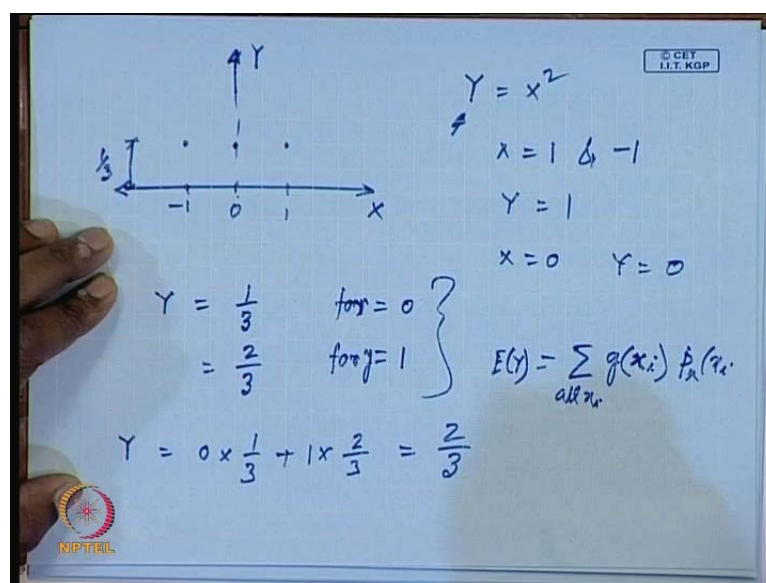 Y
© CET
I.I.T. KGP
Y = x²
1/3
-1 0 1 X
X = 1 & -1
Y = 1
X = 0 Y = 0
Y = 1/3 for y = 0
= 2/3 for y = 1
E(Y) = ∑ g(xᵢ) pₓ(xᵢ
all xᵢ
Y = 0 × 1/3 + 1 × 2/3 = 2/3
NPTEL